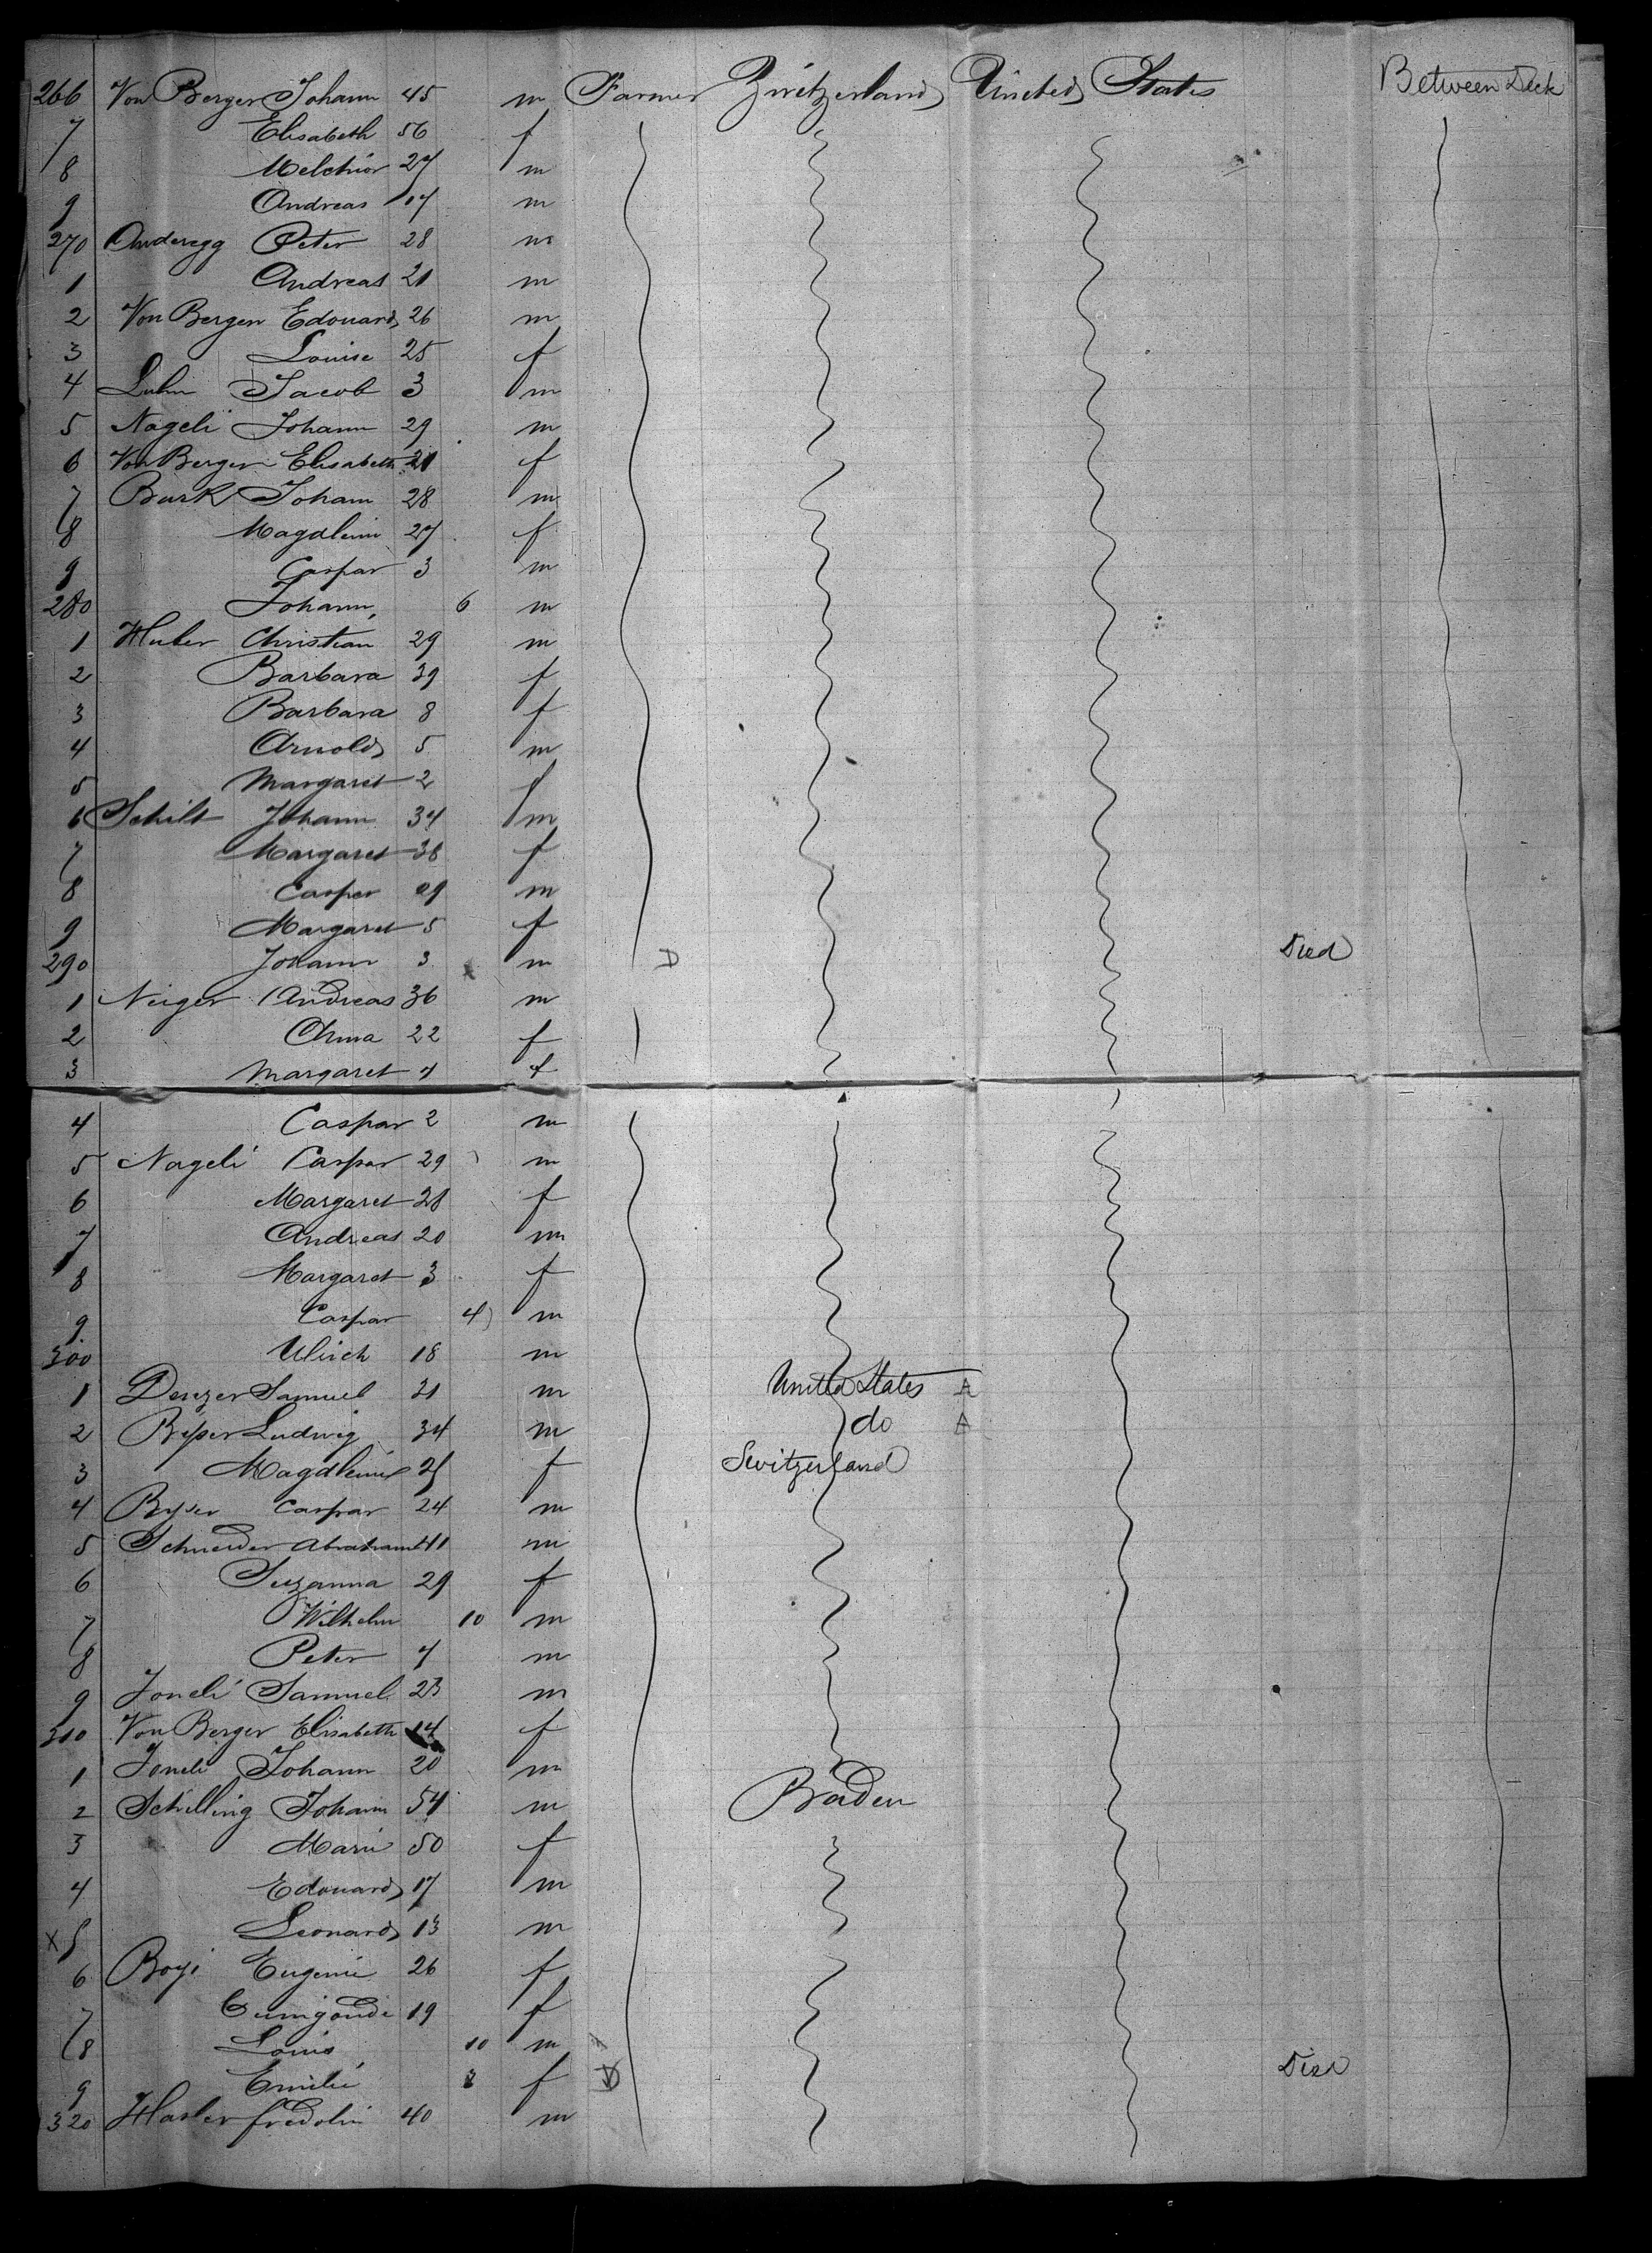 266 Von Berger Johann 45 m Farmer Zwitzerland United States Between Deck
7 Elisabeth 56 f
8 Melchior 27 m
9 Andreas 17 m
270 Anderegg Peter 28 m
1 Andreas 21 m
2 Von Bergen Edouard 26 m
3 Louise 25 f
4 Jacob 3 m
5 Nageli Johann 29 m
6 Von Bergen Elisabeth 21 f
7 Burk Johann 28 m
8 27 f
9 Caspar 3 m
280 Johann 6 m
1 Huber Christian 29 m
2 Barbara 39 f
3 Barbara 8 f
4 Arnold 5 m
5 Margaret 2 f
6 Schilt Johann 34 m
7 Margaret 38 f
8 Casper 09 m
9 Margaret 5 f
290 Johann 3 x m D Died
1 Neiger Andreas 36 m
2 Anna 22 f
3 Margaret 4 f
4 Caspar 2 m
5 Nageli Caspar 29 m
6 Margaret 28 f
7 Andreas 20 m
8 Margaret 3 f
9 Caspar 4 m
300 Ulrich 18 m
1 Samuel 31 m United States A
2 Ludwig 34 m do A
3 f Switzerland
4 Caspar 24 m
5 Schneider Abraham 41 m
6 Suzanna 29 f
7 Wilhelm 10 m
8 Peter 4 m
9 Samuel 23 m
310 Von Berger Elisabeth 14 f
1 Johann 20 m
2 Schilling Johann 54 m Baden
3 Marie 50 f
4 Edouard 17 m
x 5 Leonard 13 m
6 Eugenie 26 f
7 19 f
8 Louis 10 m
9 Emilie 3 f D Died
320 Hasler fredolin 40 m